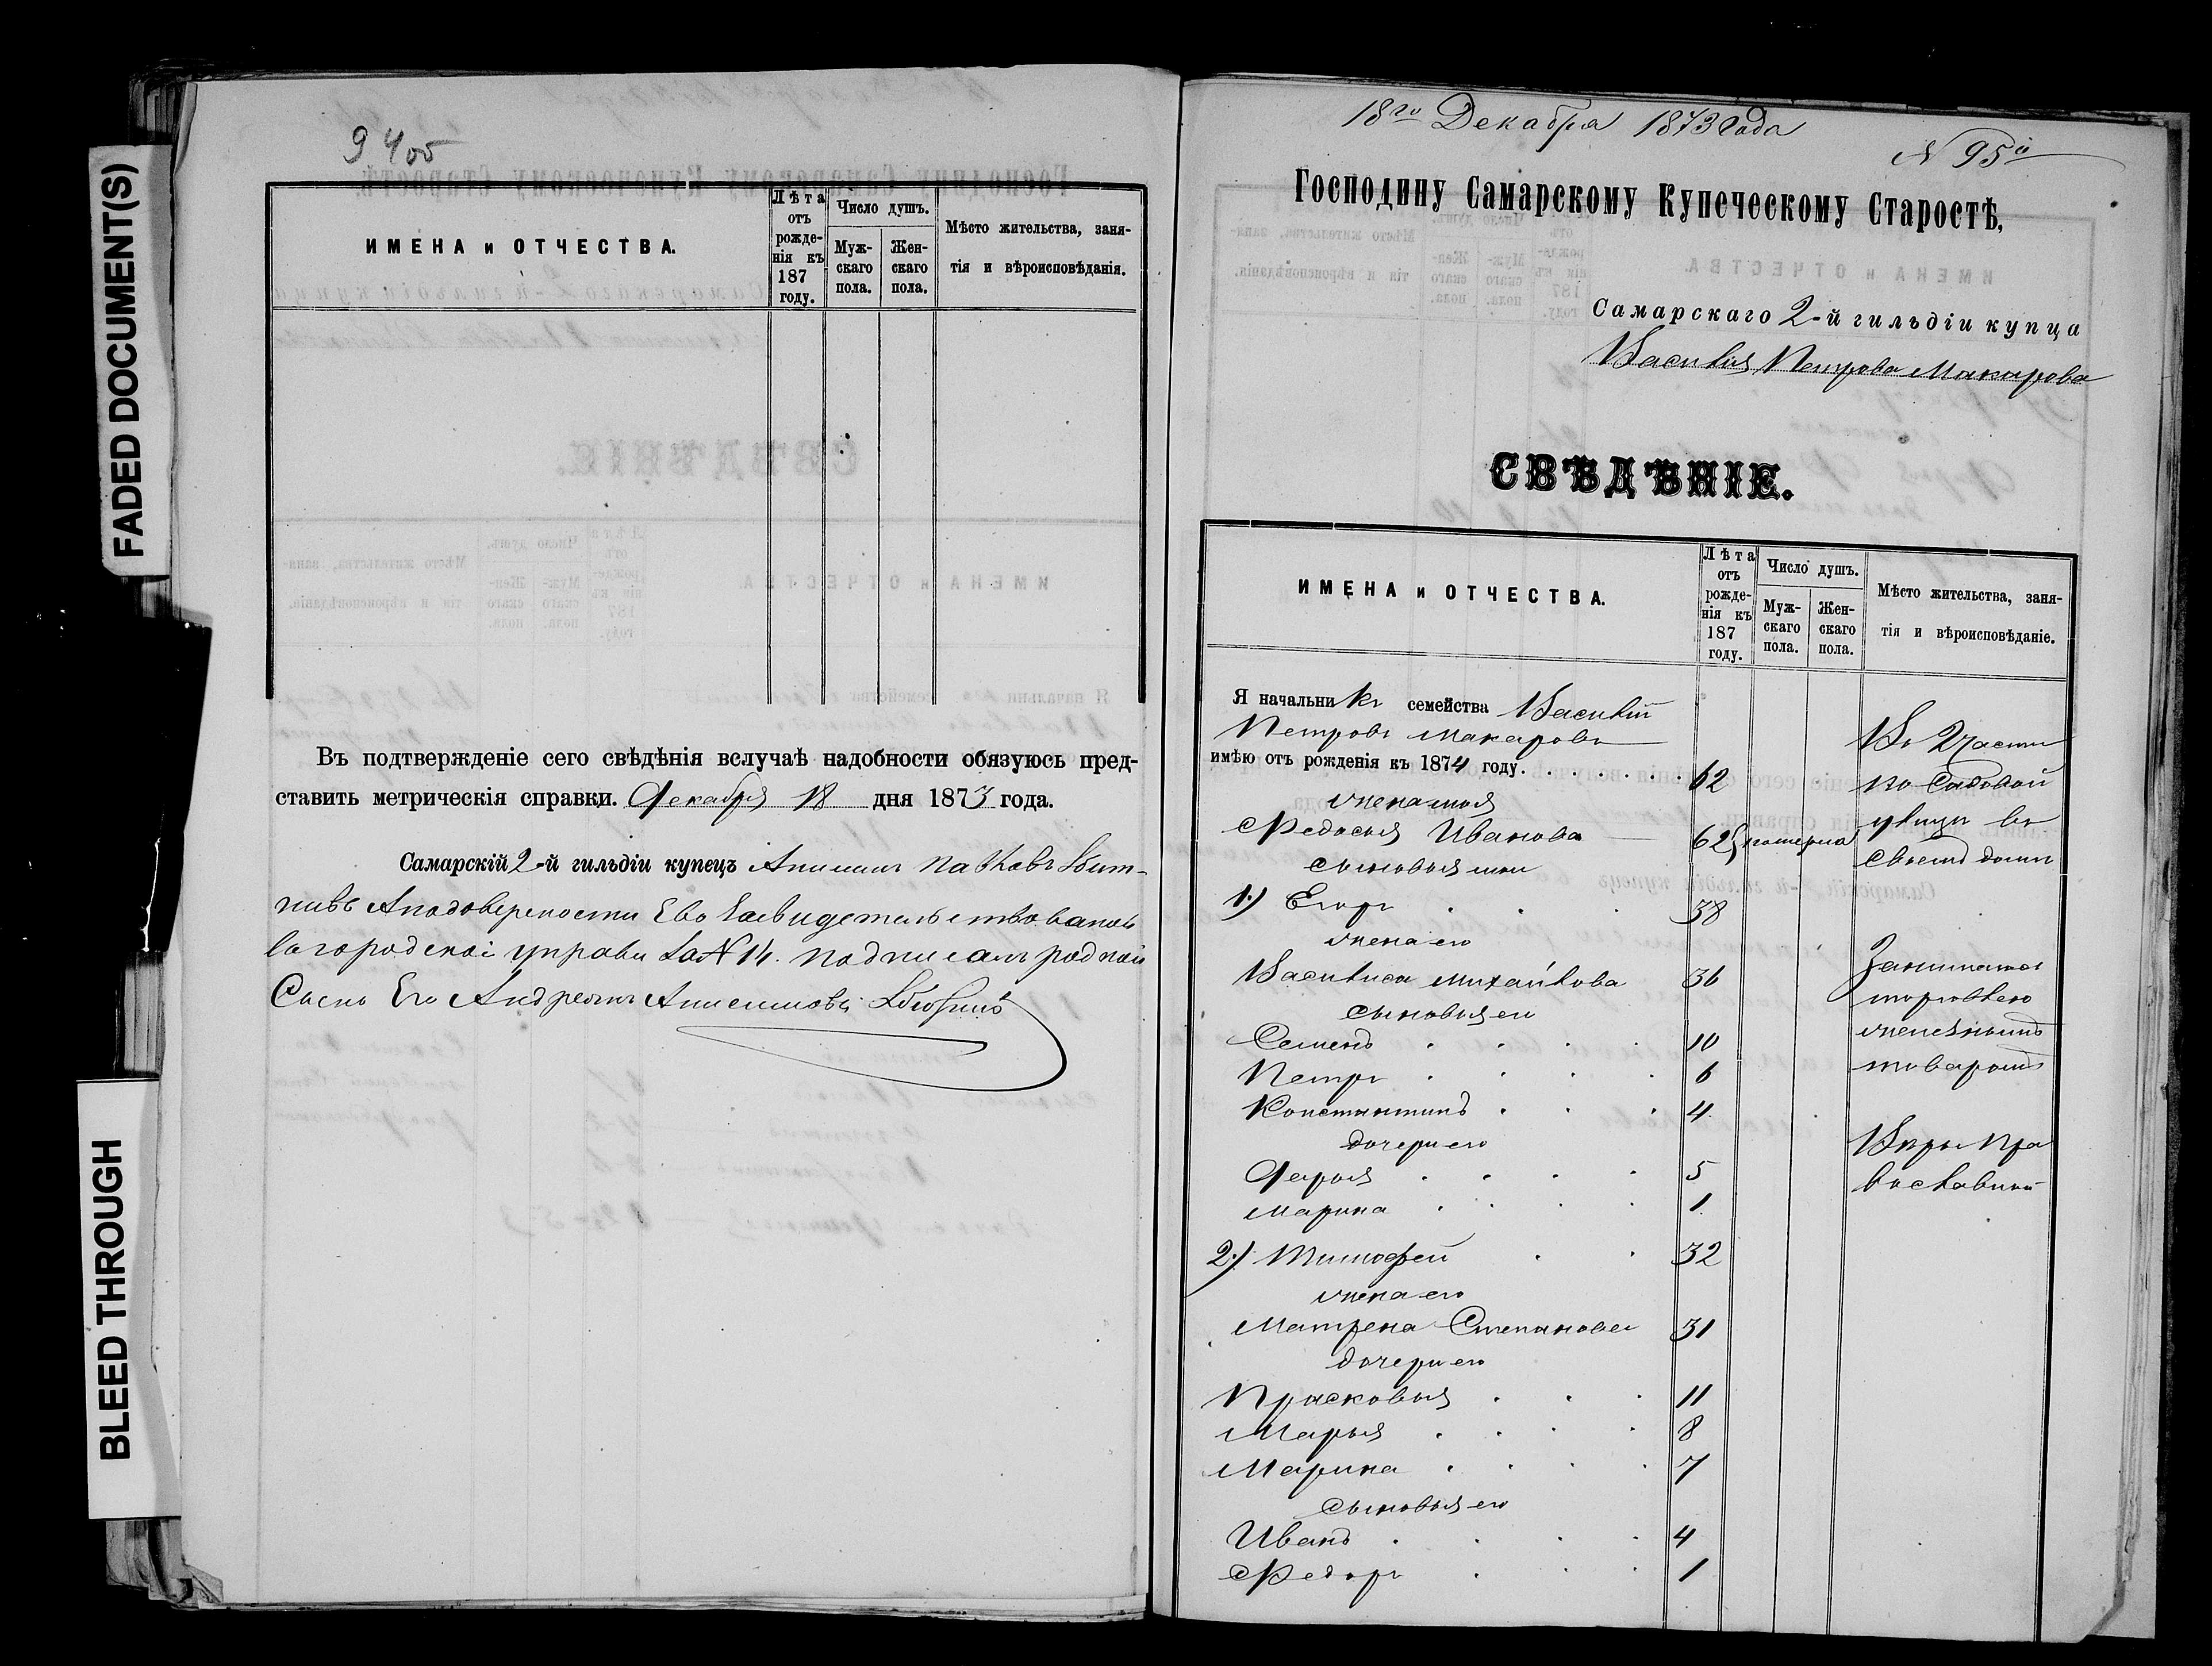 FADED DOCUMENT(S)
BLEED THROUGH
94об
ИМЕНА и ОТЧЕСТВА.
Лѣта отъ рожденія къ 187 году.
Число душъ.
Мужскаго пола.
Женскаго пола.
Мѣсто жительства, занятія и вѣроисповѣданія.
Въ подтвержденіе сего свѣдѣнія вслучаѣ надобности обязуюсь пред-
ставить метрическія справки. Декабря 18 дня 1873 года.
Самарскій 2-й гильдіи купецъ
Аподоверености Ево Засвидетельствованой
вагородской управи За№ 14. подписалъ родной
Сынъ Его Андреянъ Анисимовъ
18го Декабря 1873 года
№ 95й
Господину Самарскому Купеческому Старостѣ,
Самарскаго 2-й гильдіи купца
Василія Петрова Макарова
СВѢДѢНІЕ.
ИМЕНА и ОТЧЕСТВА.
Лѣта отъ рожденія къ 187 году.
Число душъ.
Мужскаго пола.
Женскаго пола.
Мѣсто жительства, занятія и вѣроисповѣданіе.
Я начальникъ семейства Василій
Петровъ Макаровъ
имѣю отъ рожденія къ 1874 году. 62
жена моя
Федосья Иванова 62
сыновья мои
1.) Егоръ 38
жена его
Василиса Михайлова 36
сыновья его
Семенъ 10
Петръ 6
Константинъ 4
дочери его
Дарья 5
Марина 1
2.) Тимофей 32
жена его
Матрена Степанова 31
дочери его
Прасковья 11
Марья 8
Марина 7
сыновья его
Иванъ 4
Федоръ 1
Во 2 части
по Садовой
улицѣ въ
своемъ домѣ
Занимаюсь
торговлею
железнымъ
товаромъ
Вѣры Пра
вославной